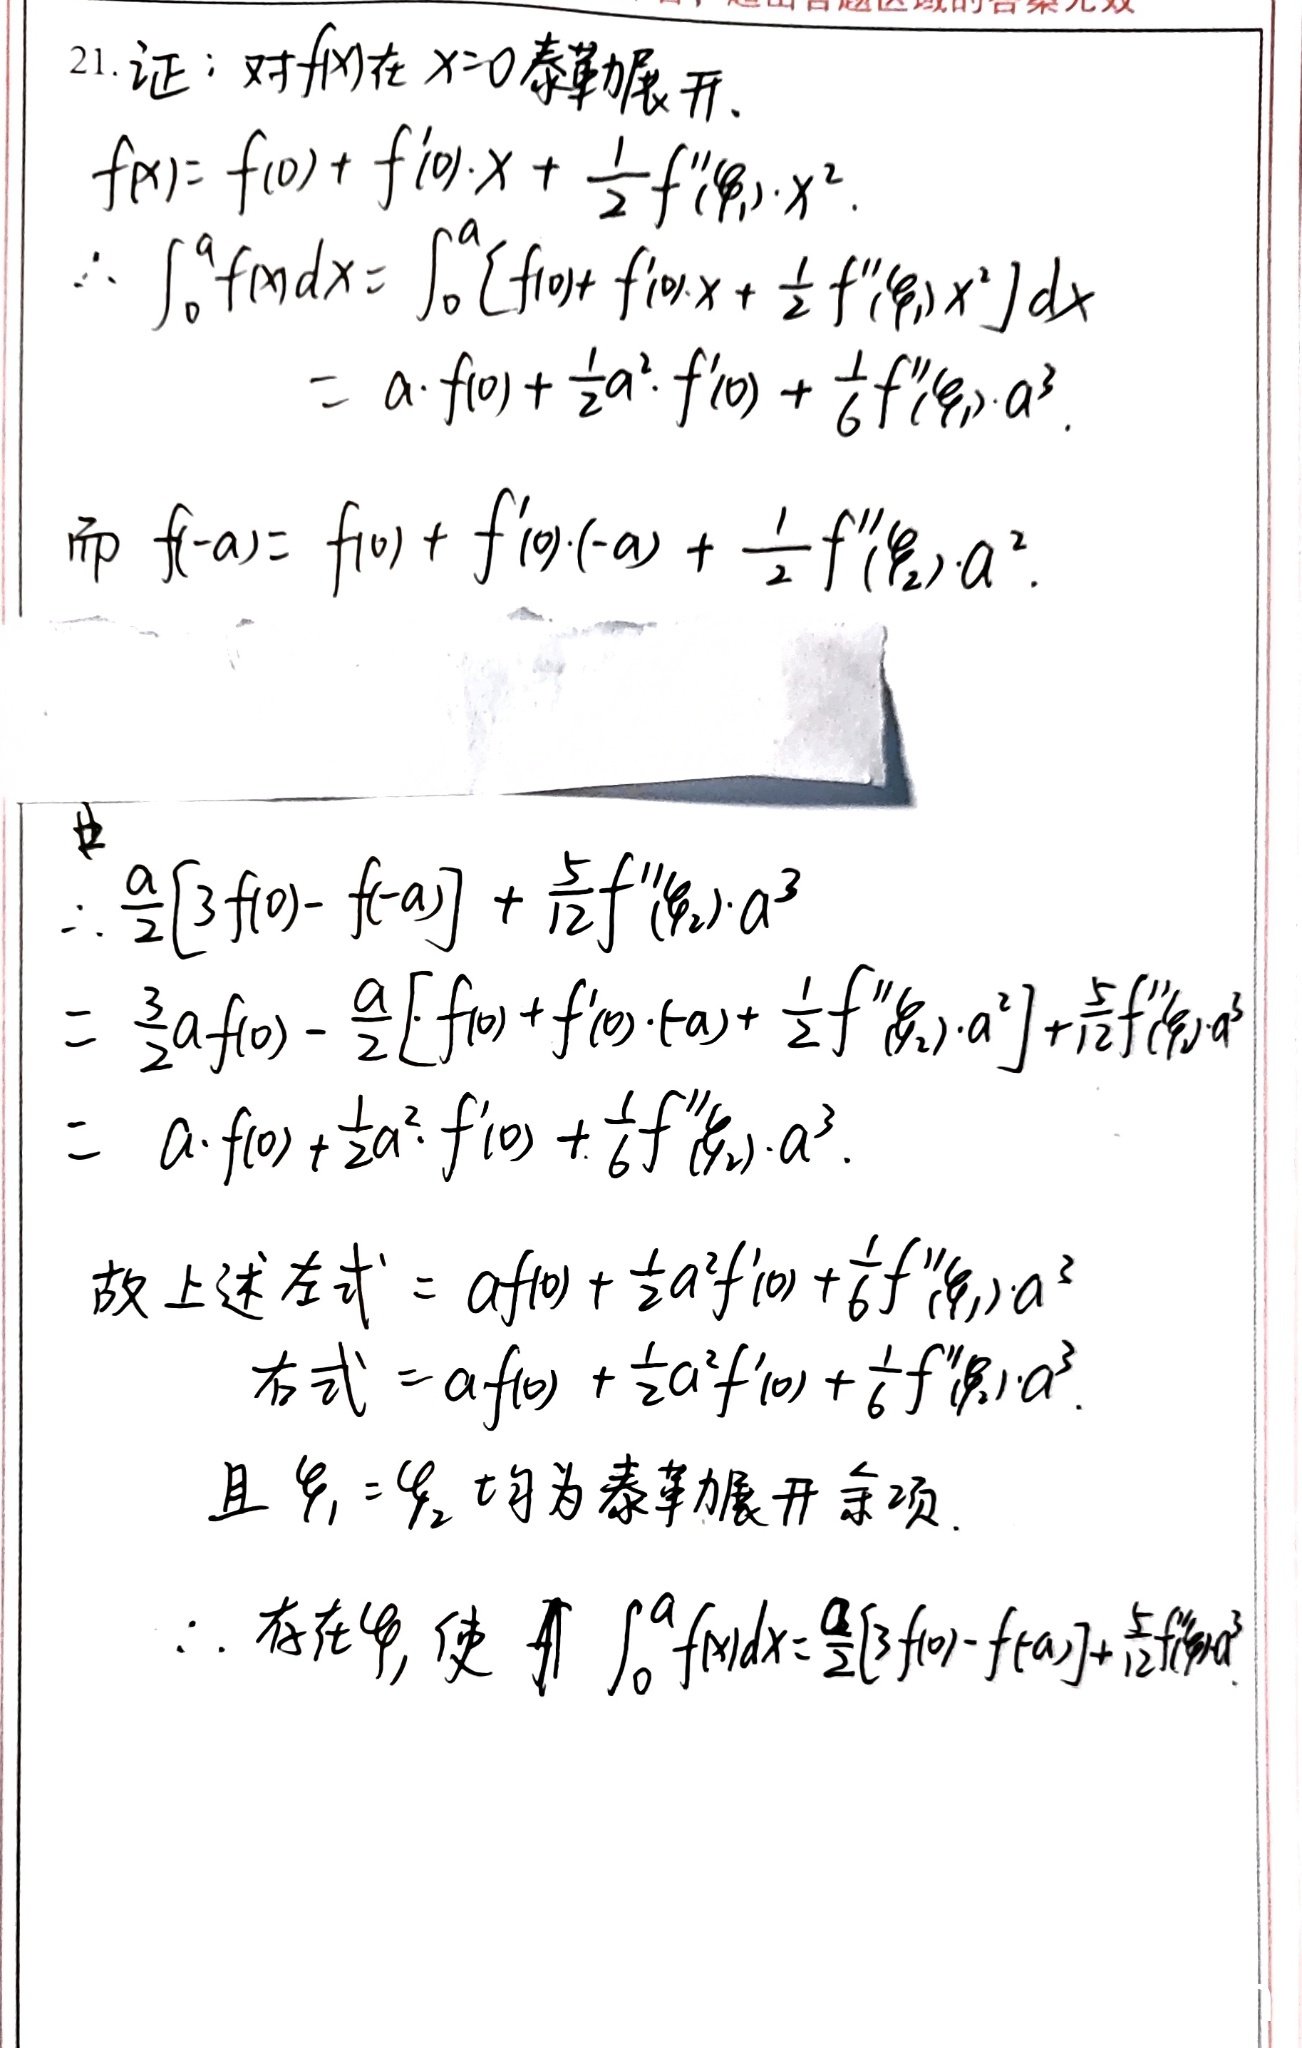 21. 证：对f(x)在 x=0泰勒展开.
f(x)= f(0) + f'(0)·x + 1/2 f''(φ₁)·x².
∴ ∫₀ᵃ f(x)dx = ∫₀ᵃ [f(0)+ f'(0)·x + 1/2 f''(φ₁)x²]dx
= a·f(0) + 1/2 a²·f'(0) + 1/6 f''(φ₁)·a³.
而 f(-a)= f(0) + f'(0)·(-a) + 1/2 f''(φ₂)·a².
∴ a/2 [3f(0) - f(-a)] + 5/12 f''(φ₂)·a³
= 3/2 a f(0) - a/2 [f(0) + f'(0)·(-a) + 1/2 f''(φ₂)·a²] + 5/12 f''(φ₂)·a³
= a·f(0) + 1/2 a²·f'(0) + 1/6 f''(φ₂)·a³.
故上述左式 = af(0) + 1/2 a²f'(0) + 1/6 f''(φ₁)·a³
右式 = af(0) + 1/2 a²f'(0) + 1/6 f''(φ₂)·a³.
且 φ₁ = φ₂ 均为泰勒展开余项.
∴ 存在φ, 使 ∫₀ᵃ f(x)dx = a/2 [3f(0) - f(-a)] + 5/12 f''(φ)a³.